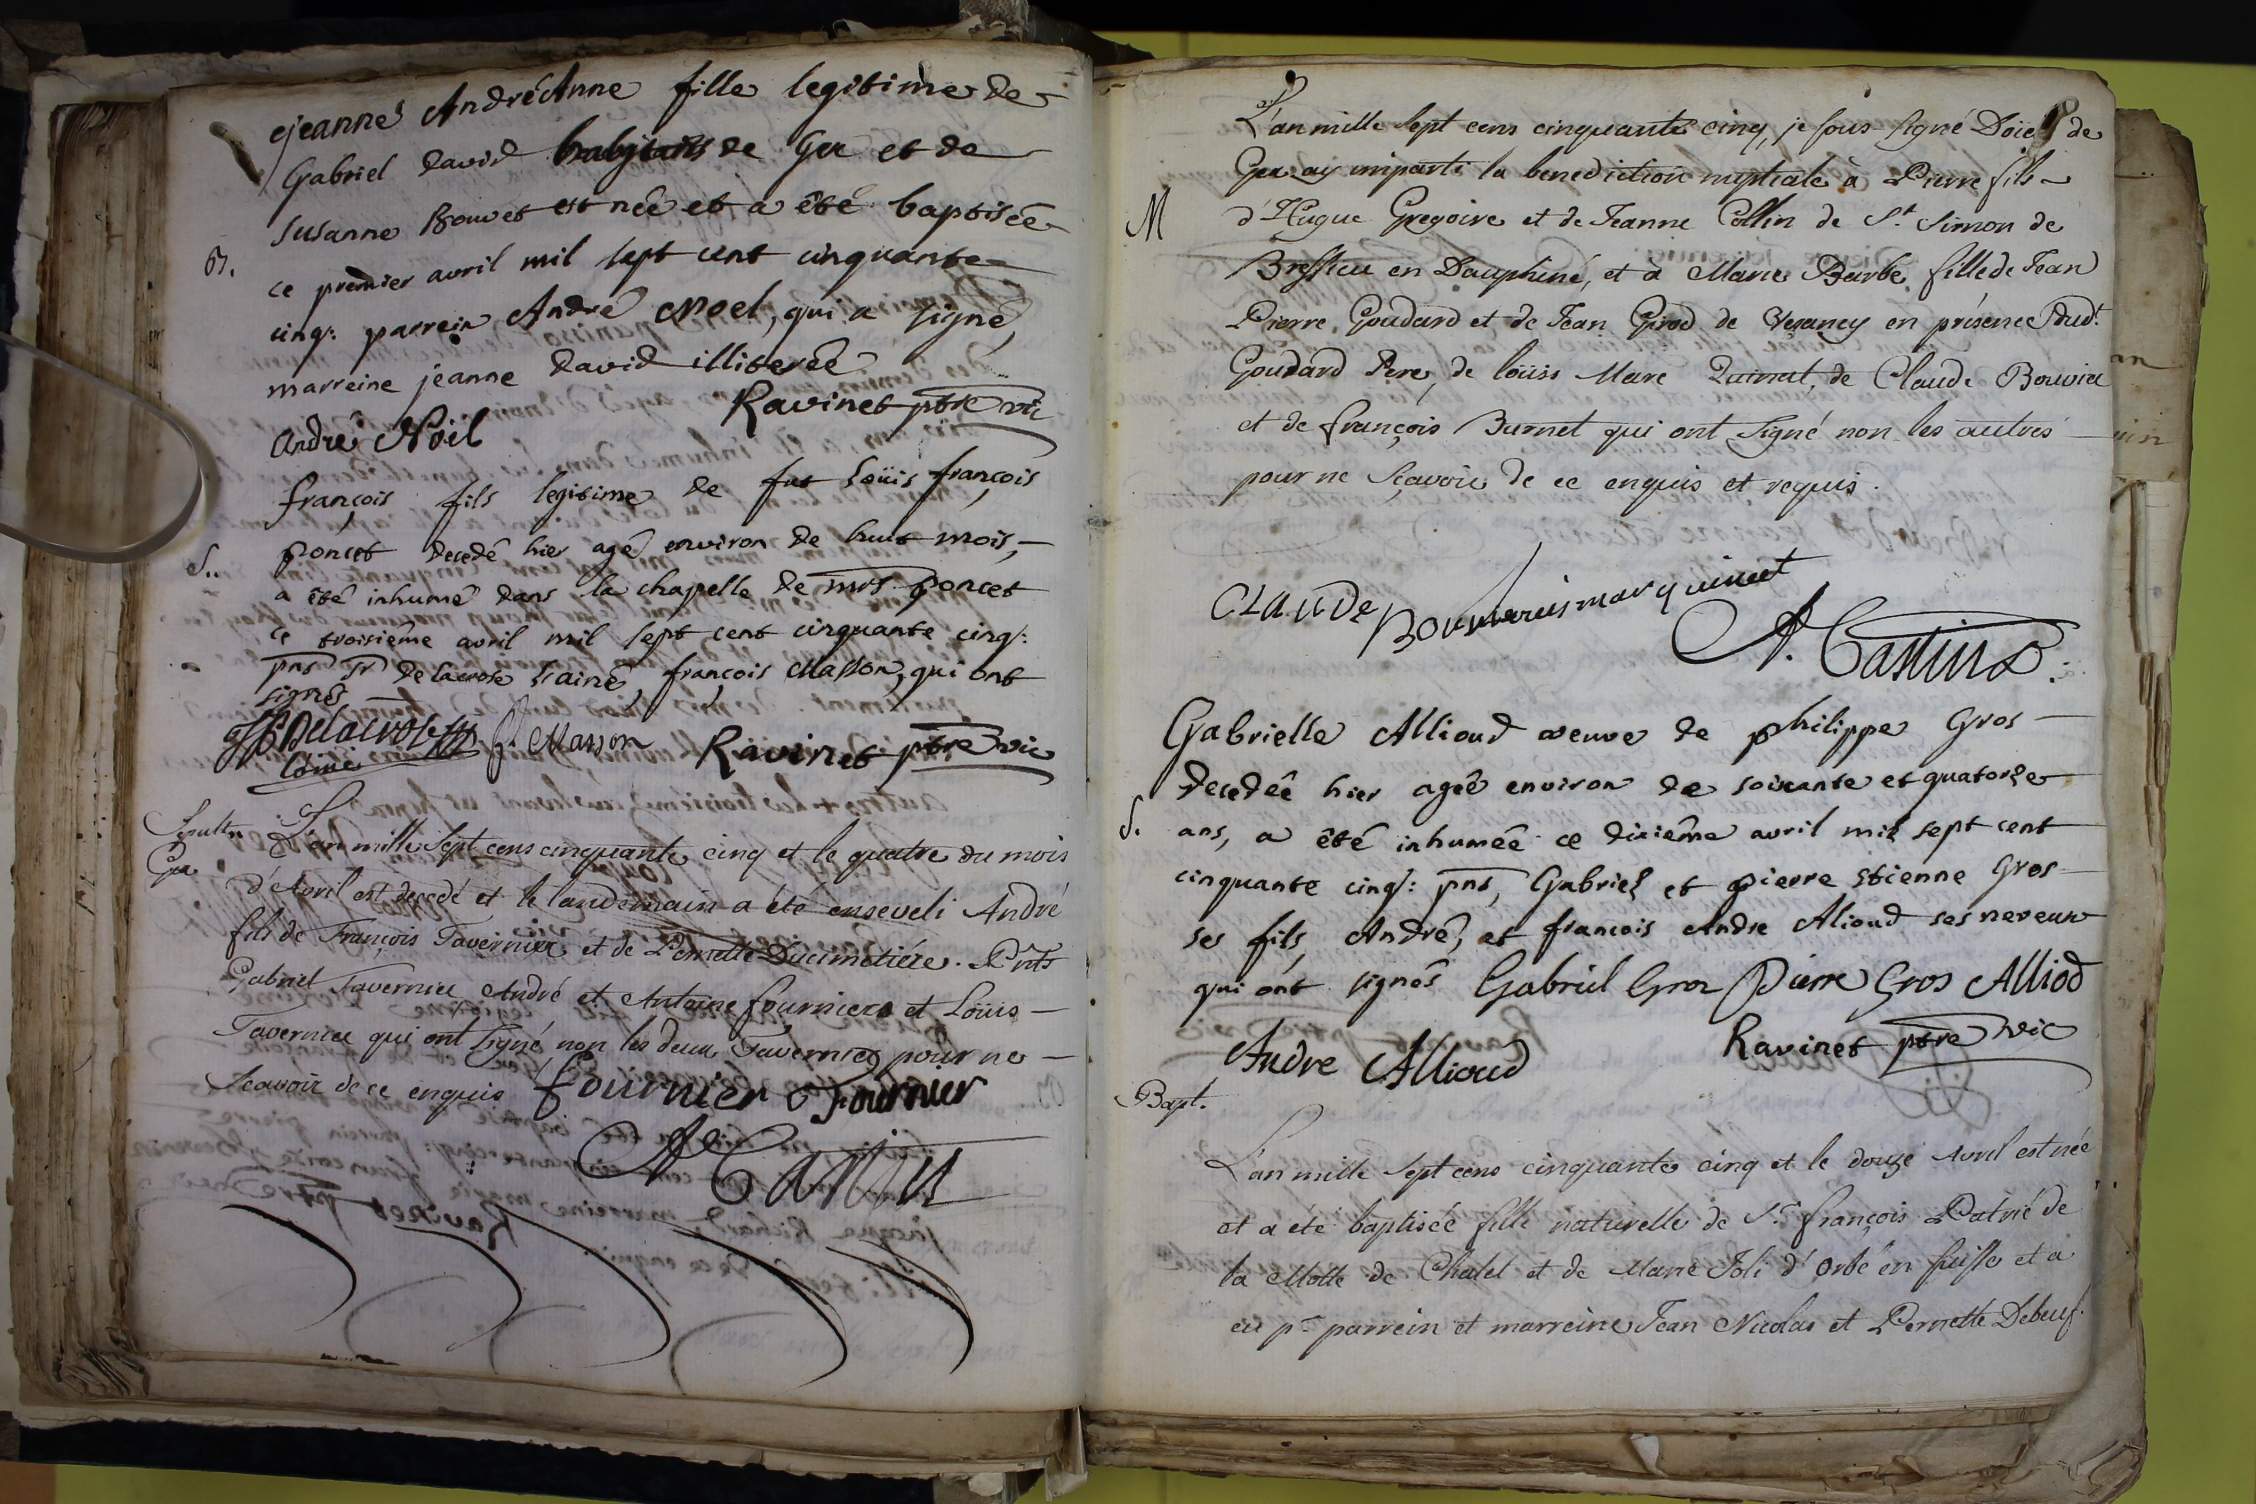 jeanne AndréAnne fille legitime de
Gabriel david habitants de Gex et de
susanne Bouvet est née et a êté baptisée
B.
ce premier avril mil sept cent cinquante
cinq: parrein André Noel, qui a signé,
marreine jeanne david illiterée
Ravinet ptre vic
andre Noël
françois fils legitime de fut Loüis françois
poncet decedé hier agé environ de huit mois,
S.
a êté inhumé dans la chapelle de mrs poncet
ce troisième avril mil sept cent cinquante cinq:
pns sr Delacrose l'ainé, françois Masson, qui ont
signés
Delacrose
f. Masson Ravinet ptre vic
l'ainé
Sepultre
Gex
L'an mille Sept cens cinquante cinq et le quatre du mois
d'Avril est decedé et le landemain a été enseveli André
fils de François Tavernier et de Pernette Ducimetiére. Pnts
Gabriel Tavernier André et Antoine fourniers et Loüis
Tavernier qui ont signé non les deux Taverniers pour ne
Scavoir de ce enquis fournier Fournier
A. Castin
L'an mille Sept cens cinquante cinq, je sous-signé Doïen de
Gex ay imparti la benediction nuptiale à Pierre fils
M
d'Hugue Gregoire et de Jeanne Collin de St. Simon de
Bressieu en Dauphiné, et à Marie Barbe fille de Jean
Pierre Goudard et de Jean Girod de Vesancy en présence dudt.
Goudard Pere, de loüis Marc Quinet, de Claude Bouvier
et de françois Burnet qui ont Signé non les autres
pour ne Sçavoir de ce enquis et requis.
CLAUDE Bouvier louis marc quinet
A. Castin
Gabrielle Allioud veuve de philippe Gros
decedée hier agée environ de soixante et quatorze
S.
ans, a êté inhumée ce dixième avril mil sept cent
cinquante cinq: pns, Gabriel et pierre etienne Gros
ses fils, André, et francois Andre Alioud ses neveux
qui ont signés Gabriel Gros Pierre Gros Alliod
Andre Allioud
Ravinet ptre vic
Bapt.
L'an mille Sept cens cinquante cinq et le douze Avril est née
et a été baptisée fille naturelle de Sr. françois Patrié de
la Motte de Chalel et de Marie Joli d'Orbe en suisse et a
eu pr parrein et marreine Jean Nicolas et Pernette Debeuf.